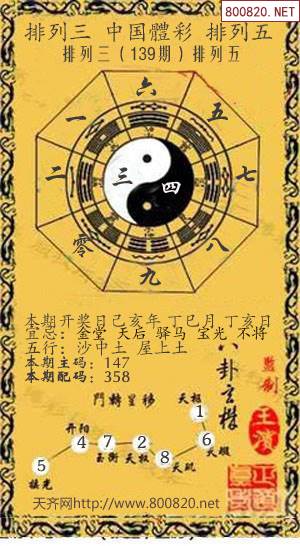 800820.NET
排列三 中国體彩 排列五
排列三（139期）排列五
六
五
二
七
三
四
零
八
九
本期开奖日己亥年 丁巳月 丁亥日
宜忌：金堂 天后 驿马 宝光 不将
五行：沙中土 屋上土
本期主码：147
本期配码：358
八卦玄機
監制
門轉星移
天枢
1
开阳
4
7
2
6
玉衡
天权
天璇
5
8
天玑
摇光
天齐网http://www.800820.net